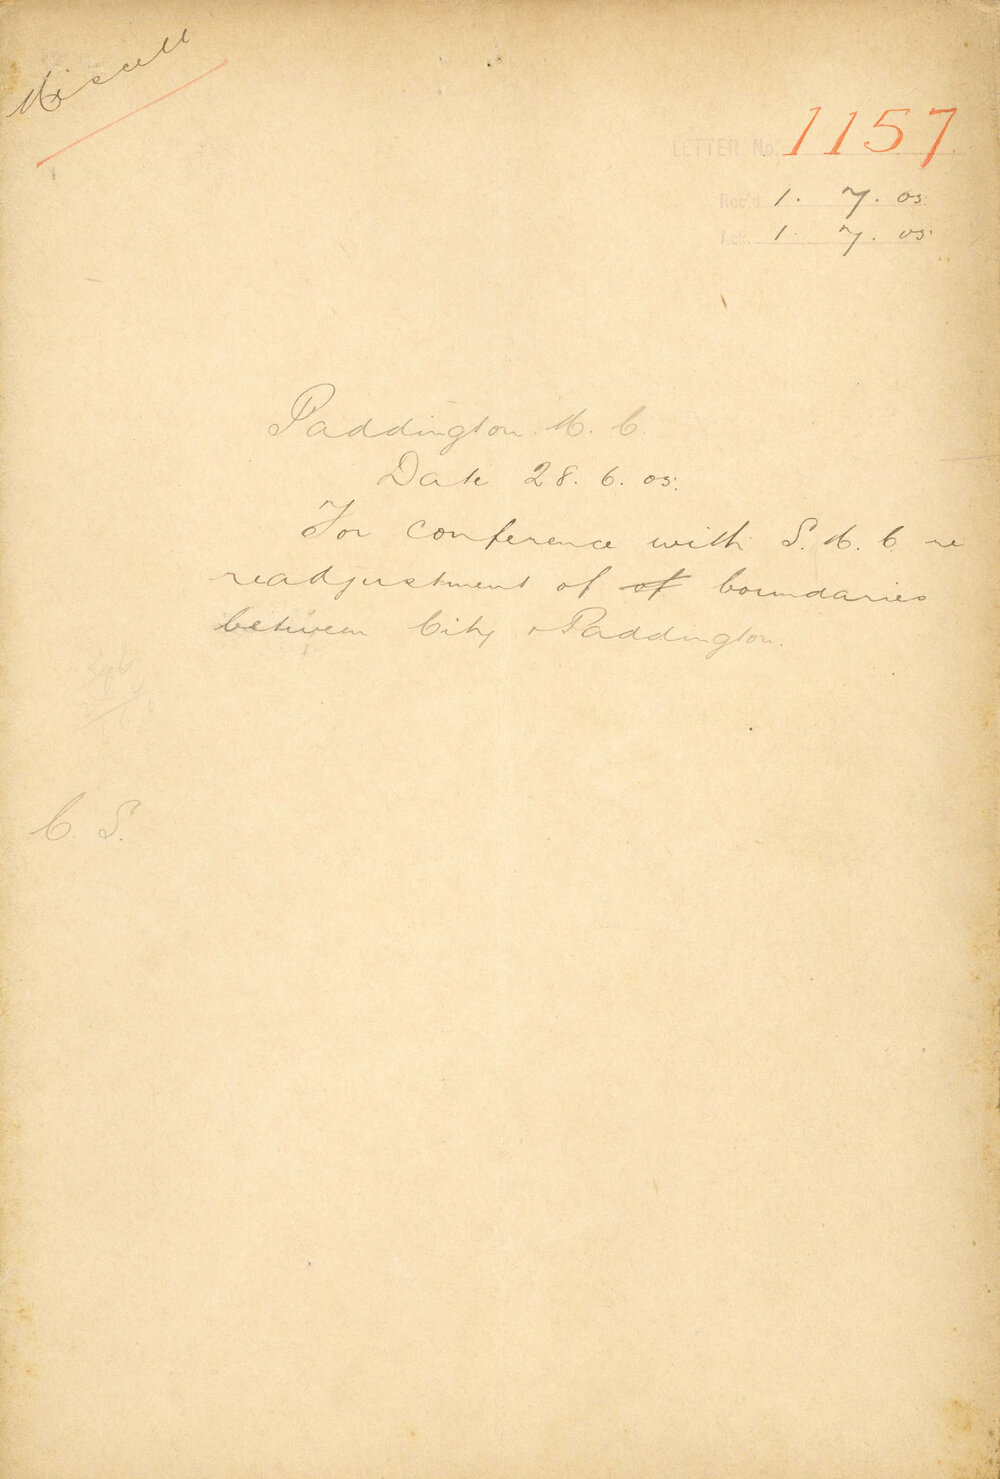 Miscell
LETTER No. 1157
Rec'd 1. 7. 05.
Ack. 1. 7. 05.
Paddington M. C.
Date 28. 6. 05.
For conference with S. M. C. re
readjustment of of boundaries
between City & Paddington.
C. S.